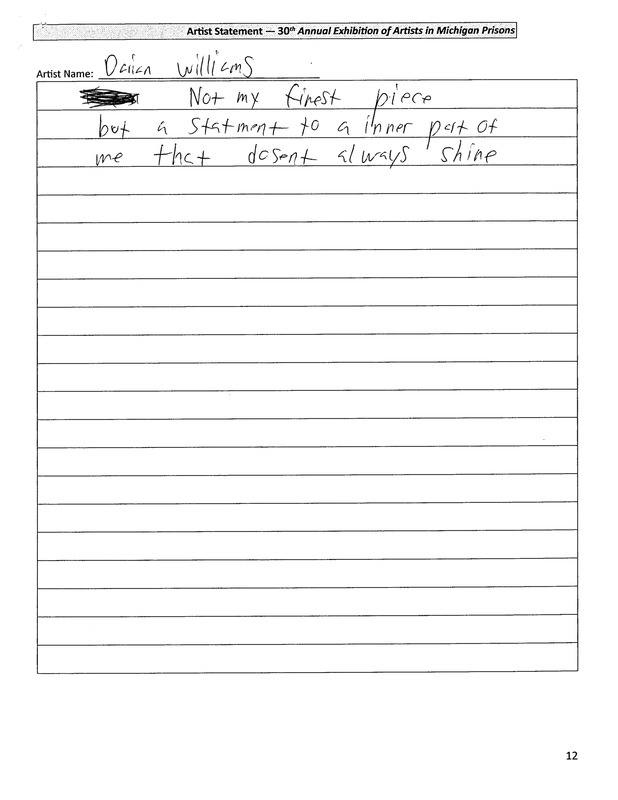 Artist Statement — 30th Annual Exhibition of Artists in Michigan Prisons
Artist Name: Daiian Williams
Not my finest piece
but a statment to a inner part of
me that dosent always shine
12